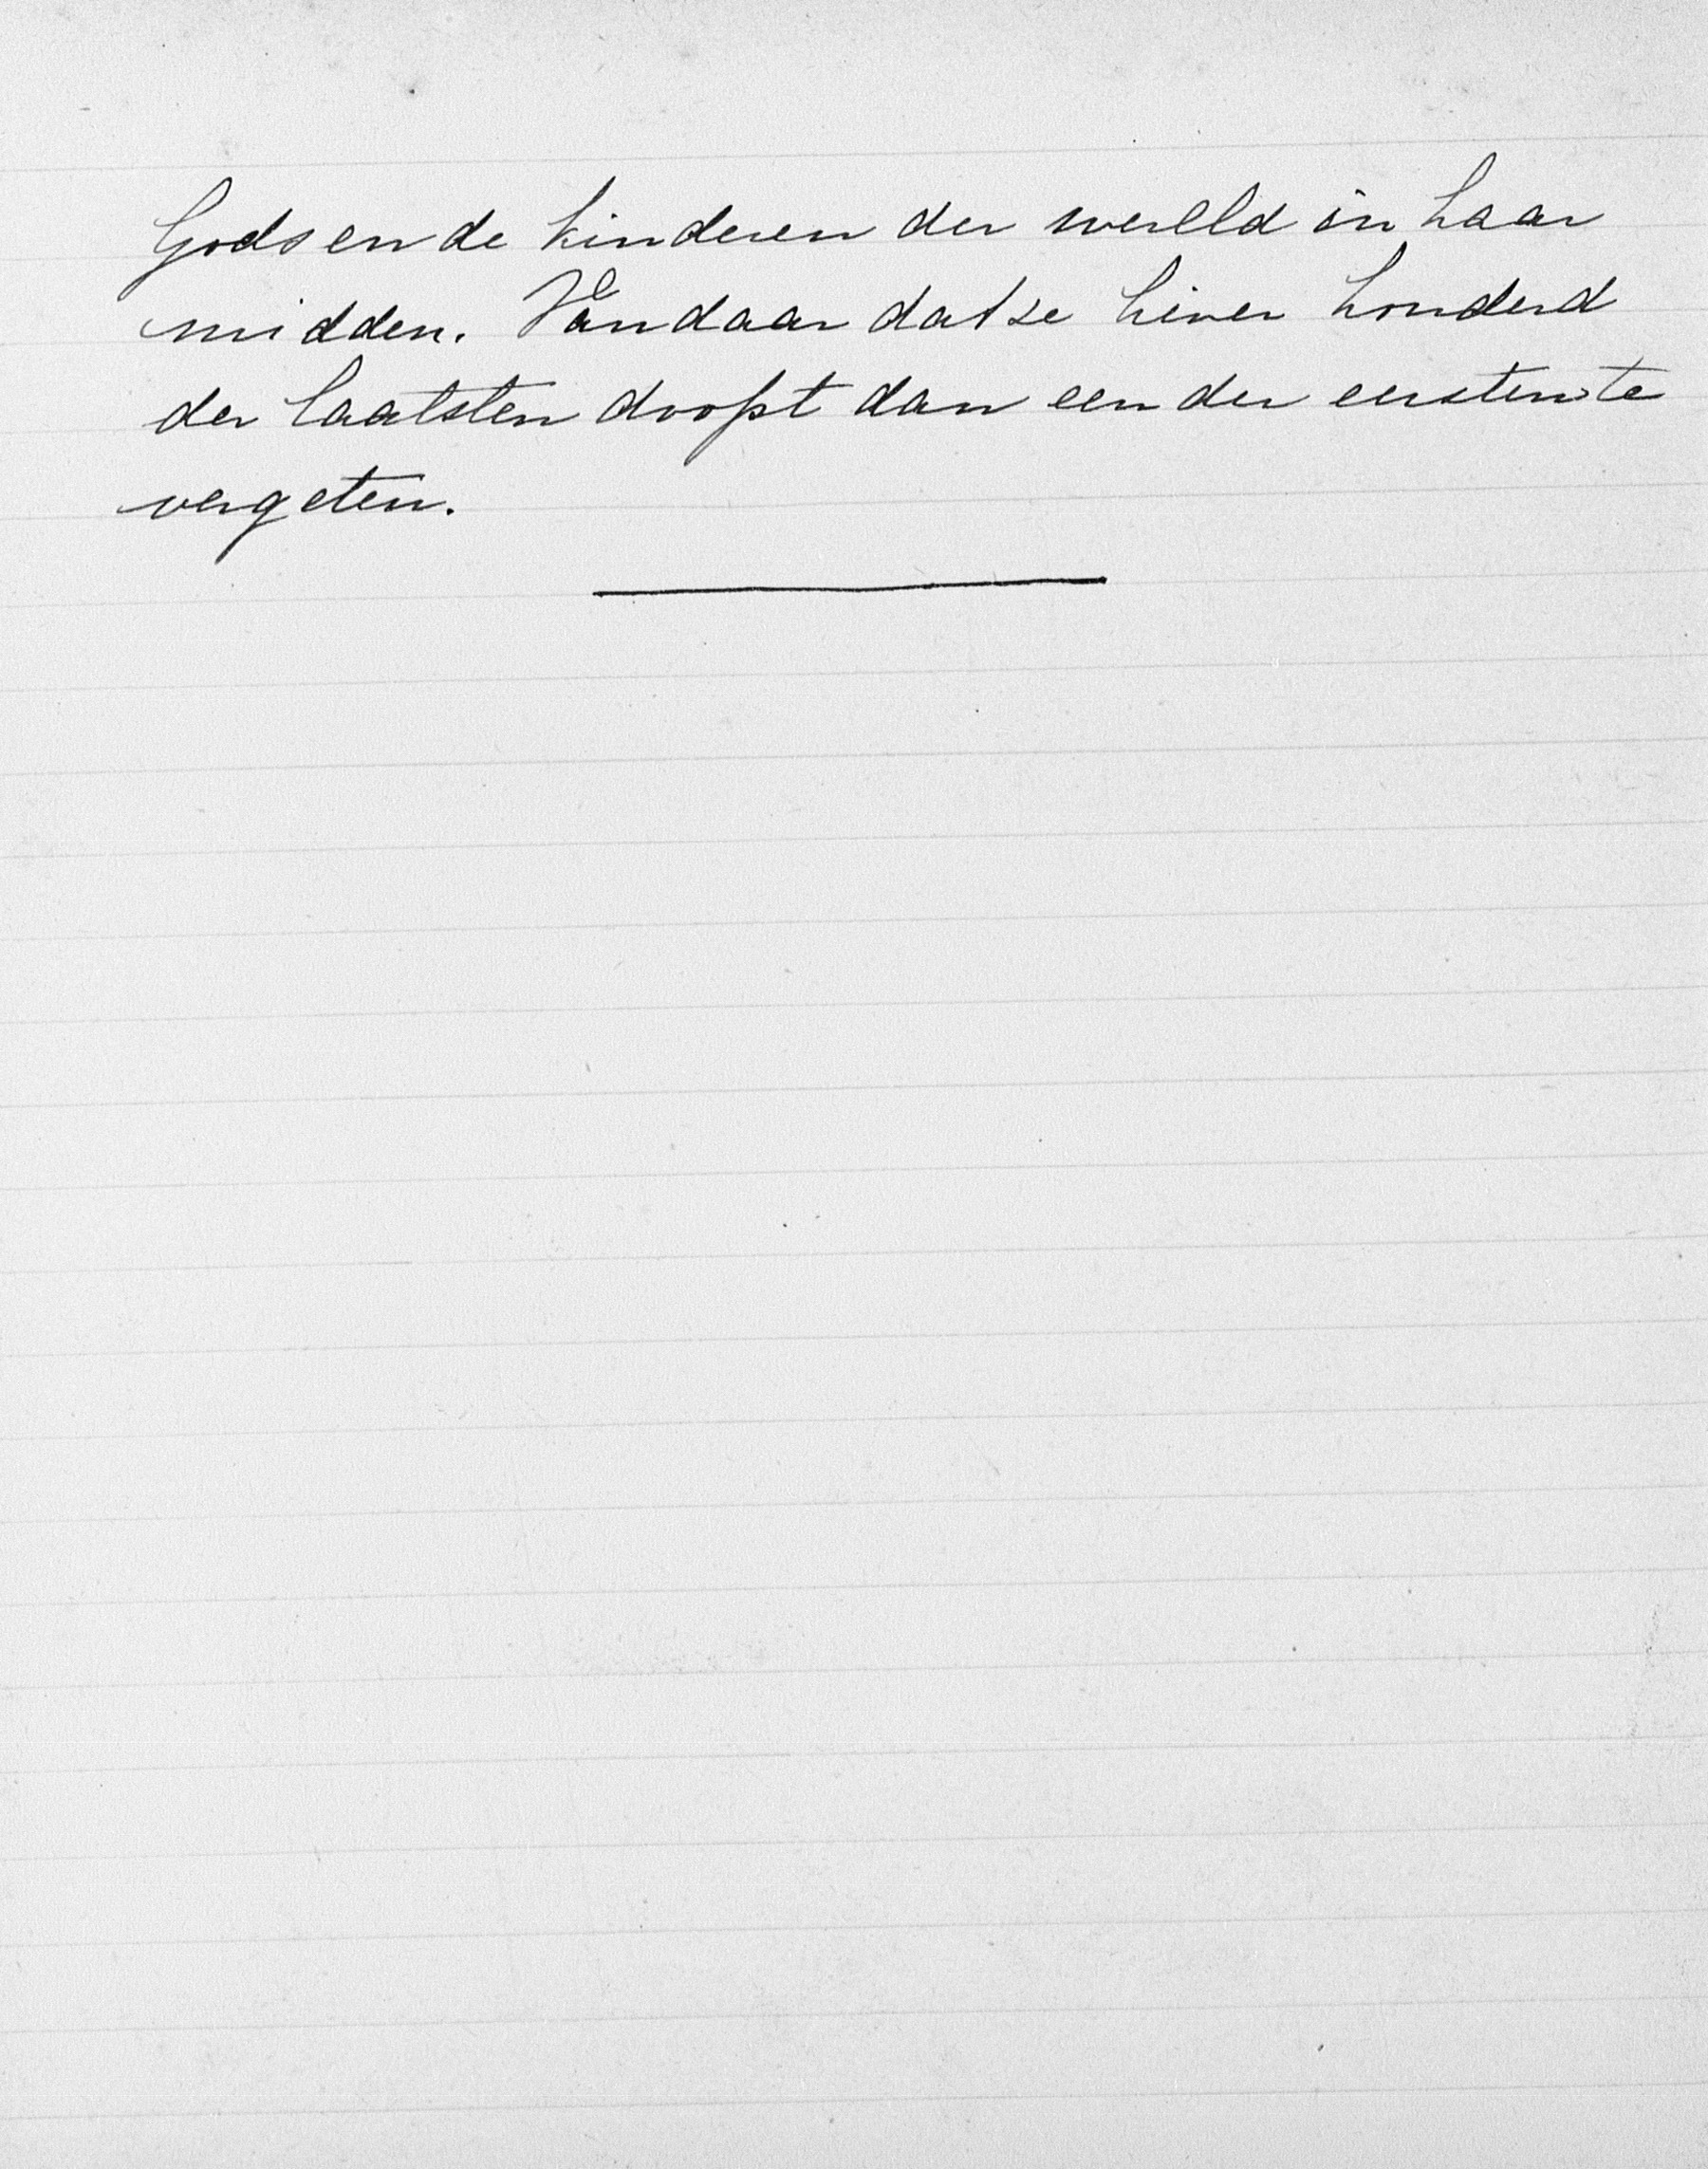 Gods en de kinderen der wereld in haar
midden. Vandaar dat ze liever honderd
der laatsten doopt dan een der eersten te
vergeten.